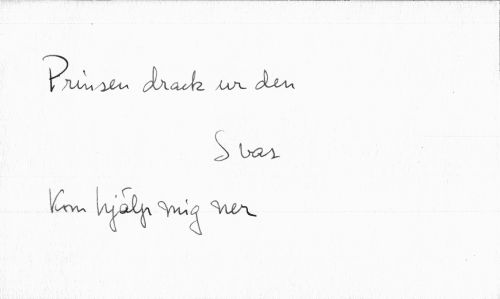 Prinsen drack ur den
Svar
Kom hjälp mig ner